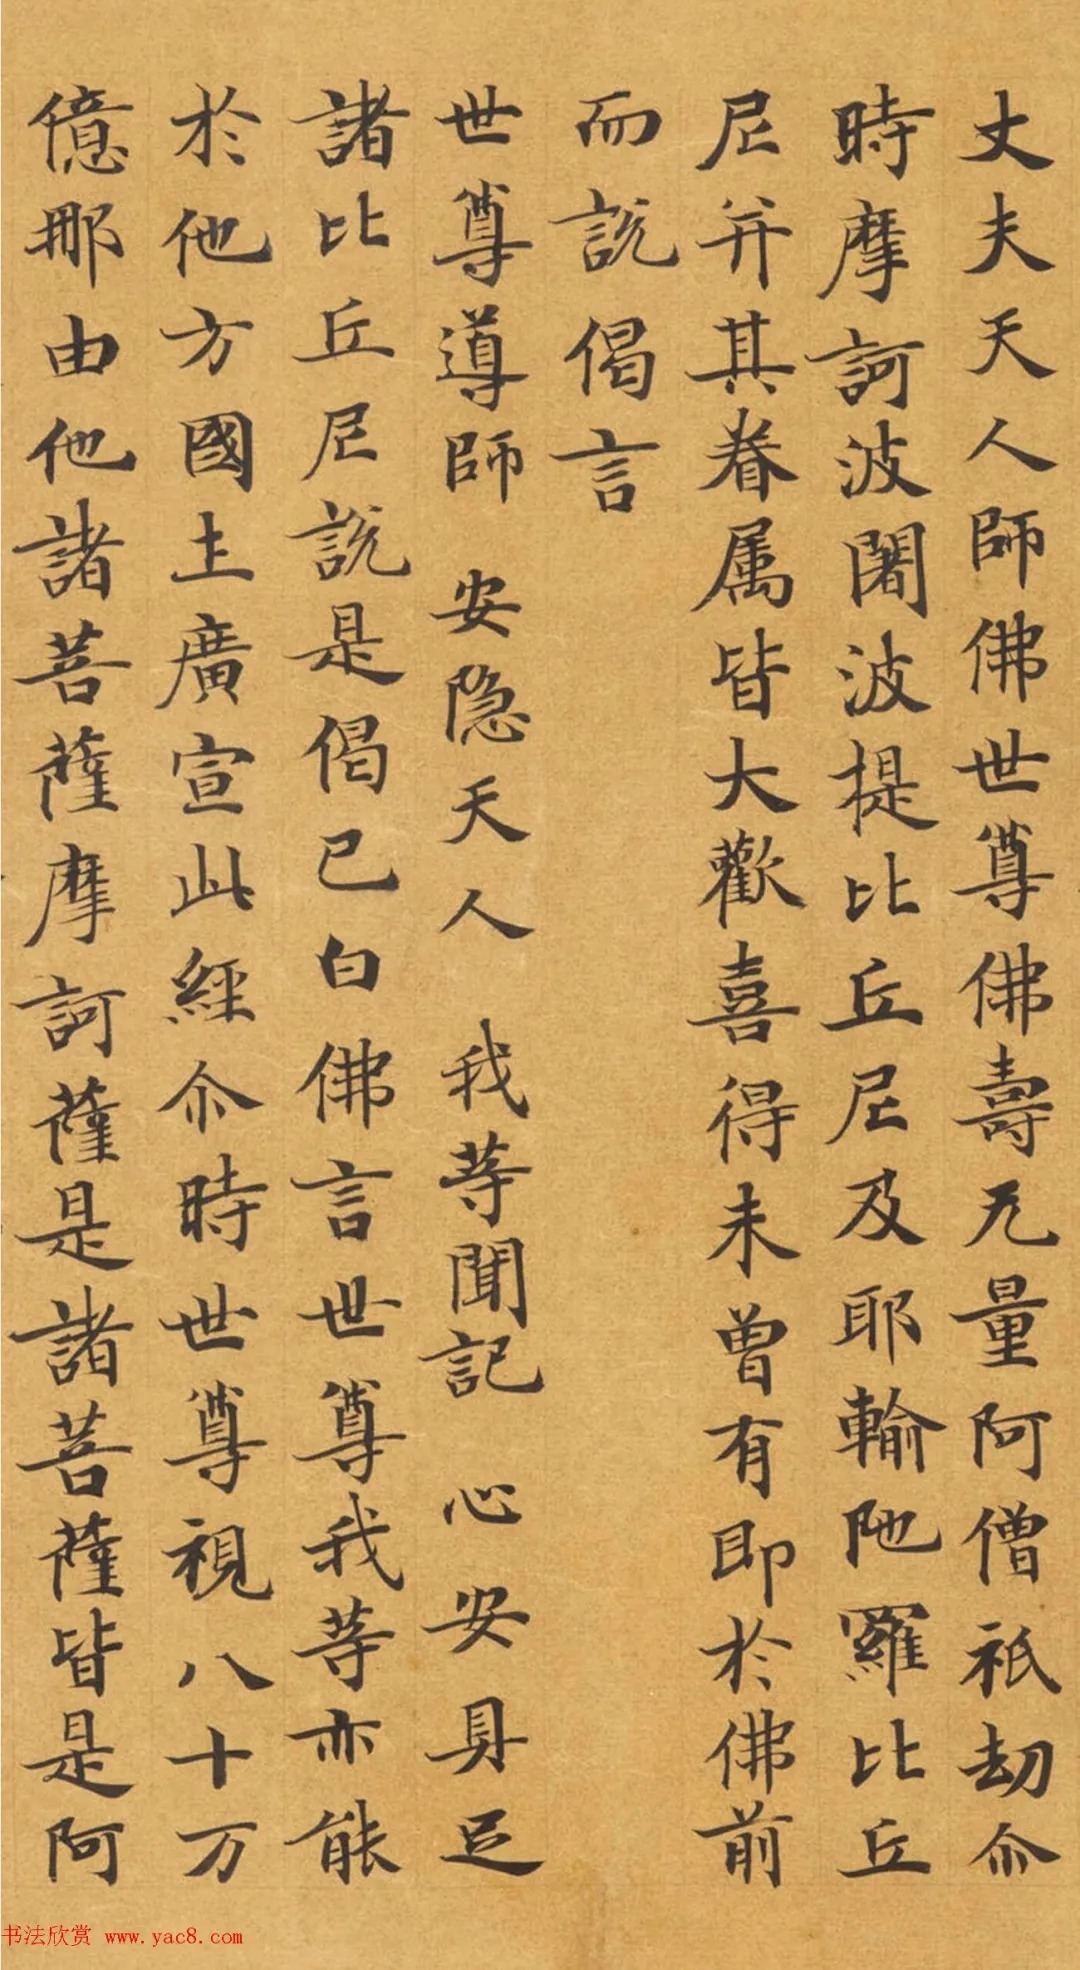 丈夫天人師佛世尊佛壽无量阿僧祇劫尒
時摩訶波闍波提比丘尼及耶輸陁羅比丘
尼并其眷属皆大歡喜得未曾有即於佛前
而說偈言
世尊導師　安隐天人　我等聞記　心安具足
諸比丘尼說是偈已白佛言世尊我等亦能
於他方國土廣宣此經尒時世尊視八十万
億那由他諸菩薩摩訶薩是諸菩薩皆是阿
书法欣赏 www.yac8.com